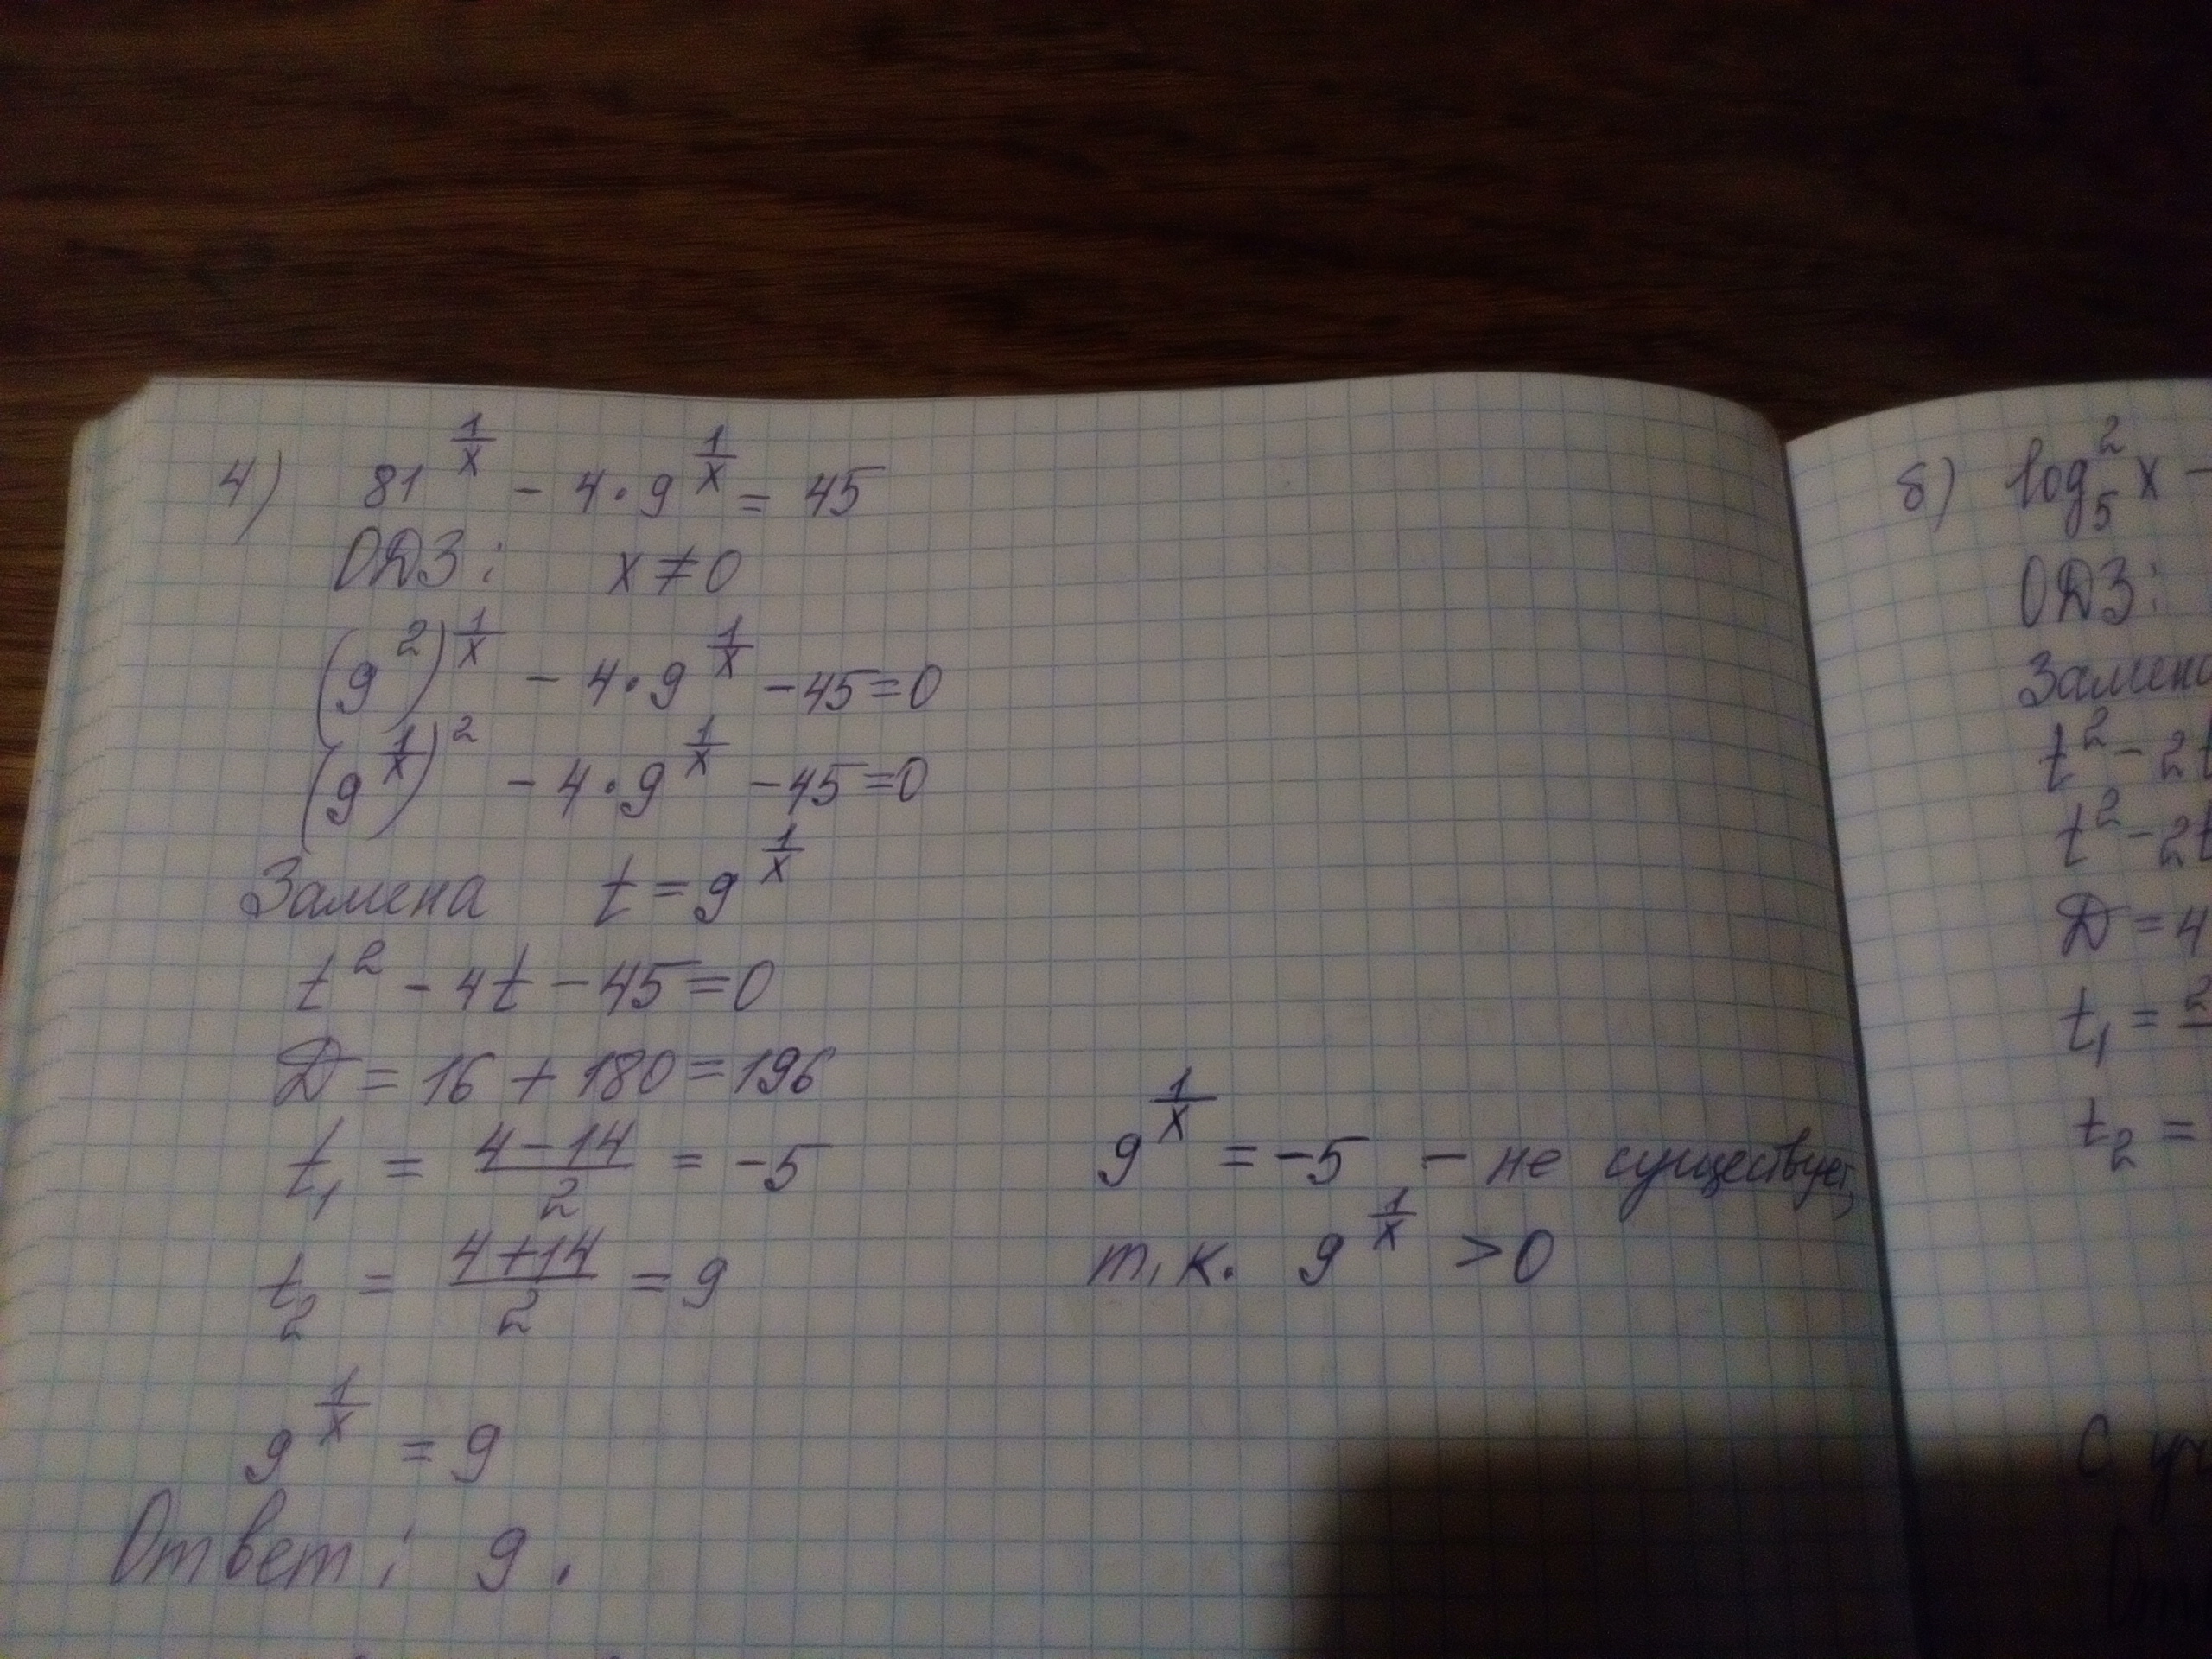 4) 81^(1/x) - 4·9^(1/x) = 45
ОДЗ: x≠0
(9^2)^(1/x) - 4·9^(1/x) - 45=0
(9^(1/x))^2 - 4·9^(1/x) - 45=0
Замена t=9^(1/x)
t^2 - 4t - 45=0
D = 16 + 180=196
t_1 = (4-14)/2 = -5
t_2 = (4+14)/2 = 9
9^(1/x) = 9
Ответ: 9.
9^(1/x) = -5 - не существует,
т.к. 9^(1/x) >0
б) log_5^2 x -
ОДЗ:
Замена
t^2 - 2t
t^2 - 2t
D = 4
t_1 = 2
t_2 =
С